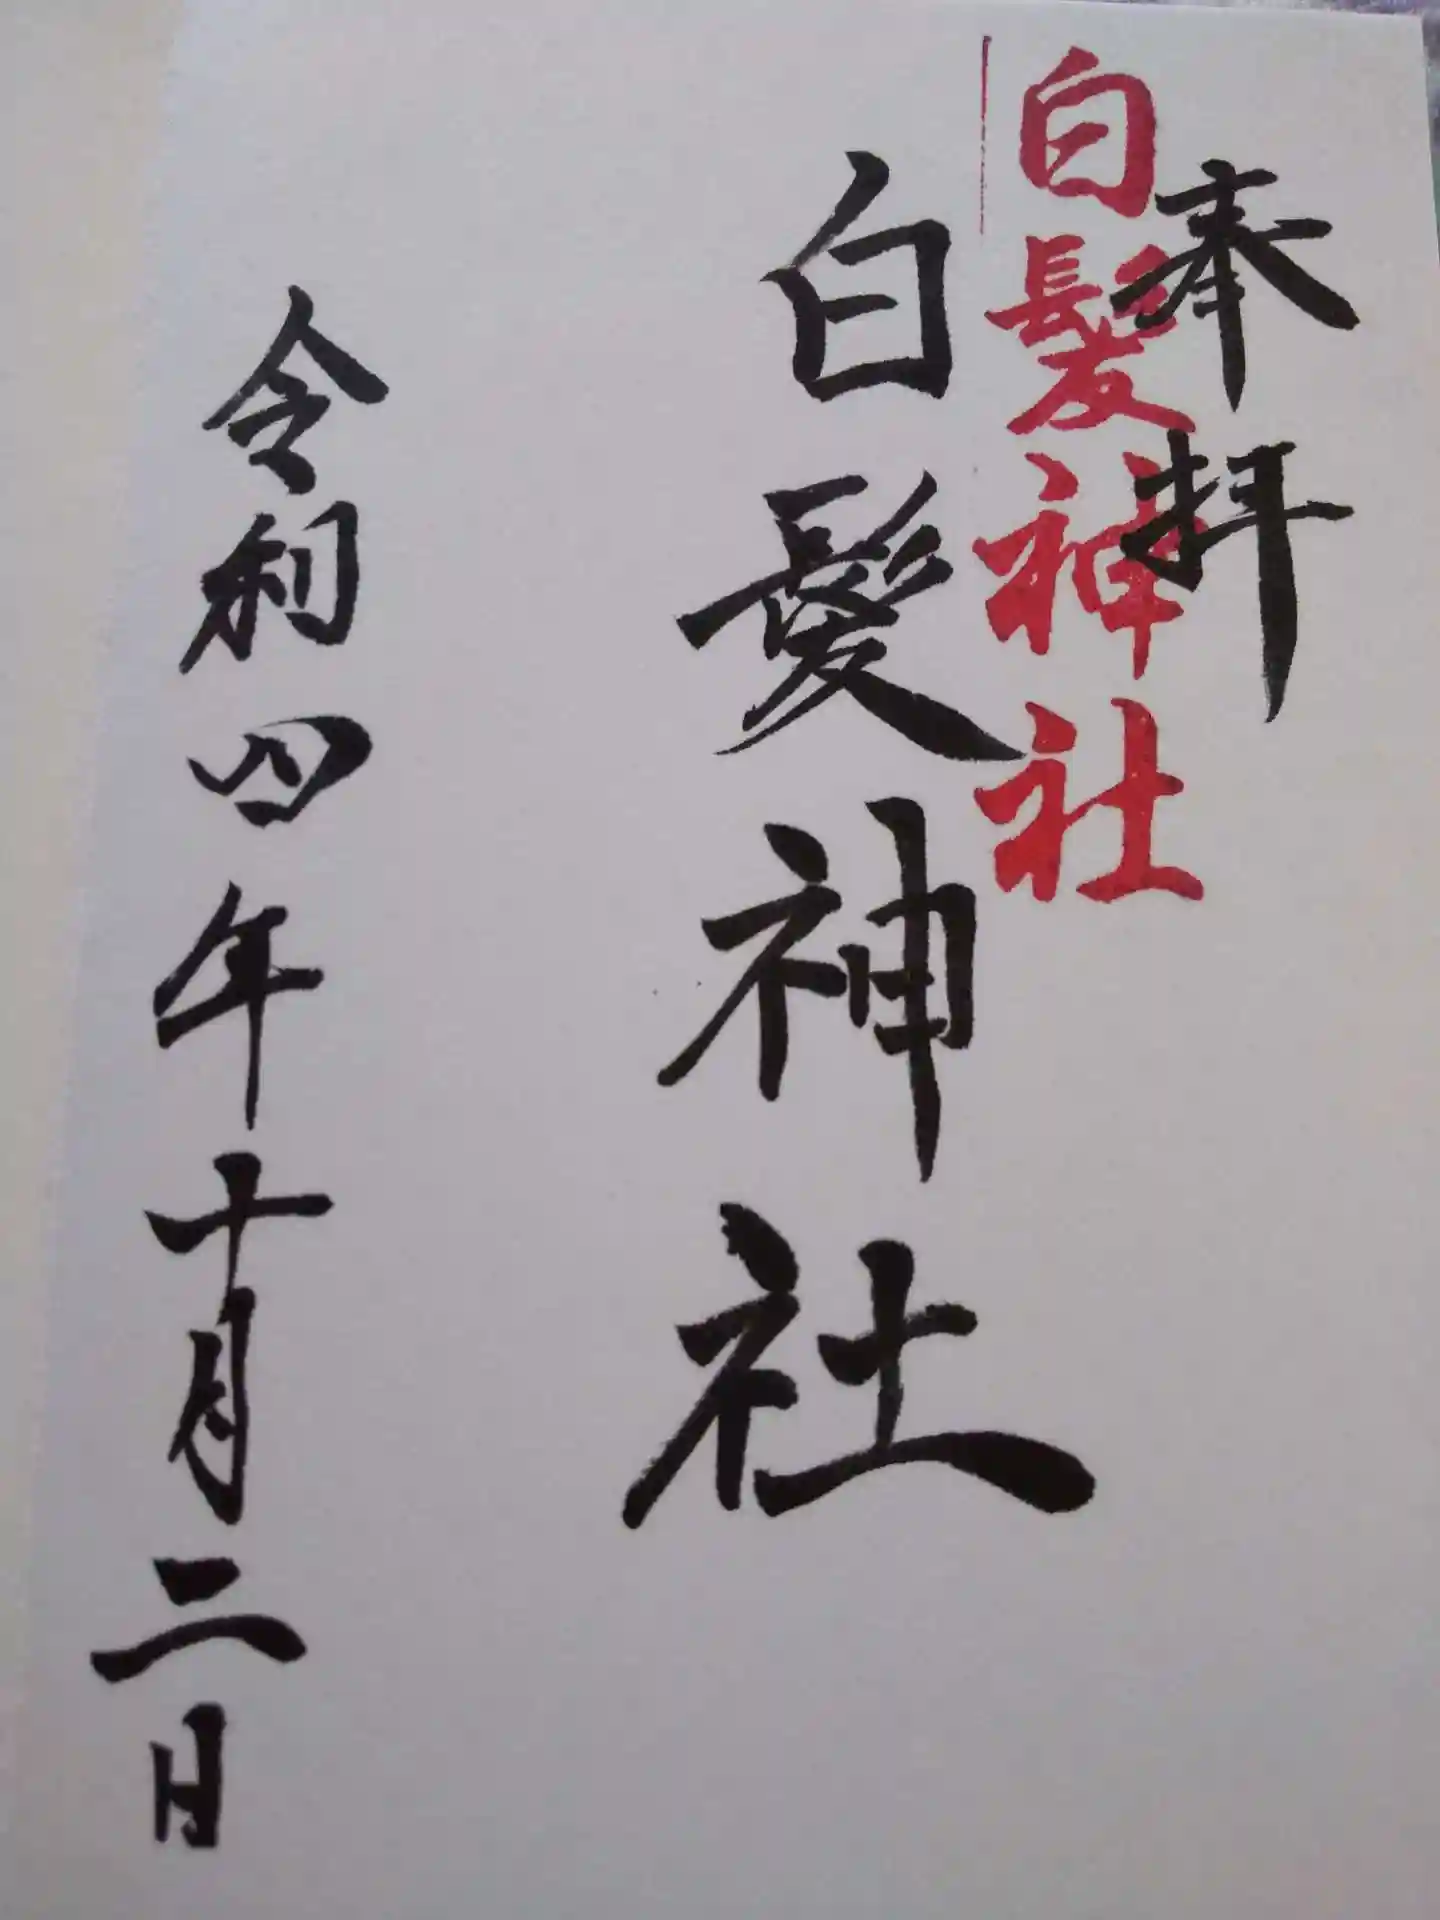 奉拝
白髪神社
白髪神社
令和四年十月二日